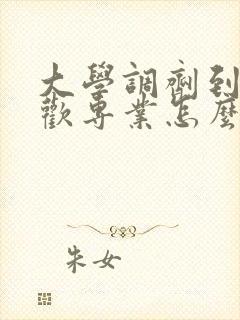 大學調劑到
歡專業怎麼
朱女